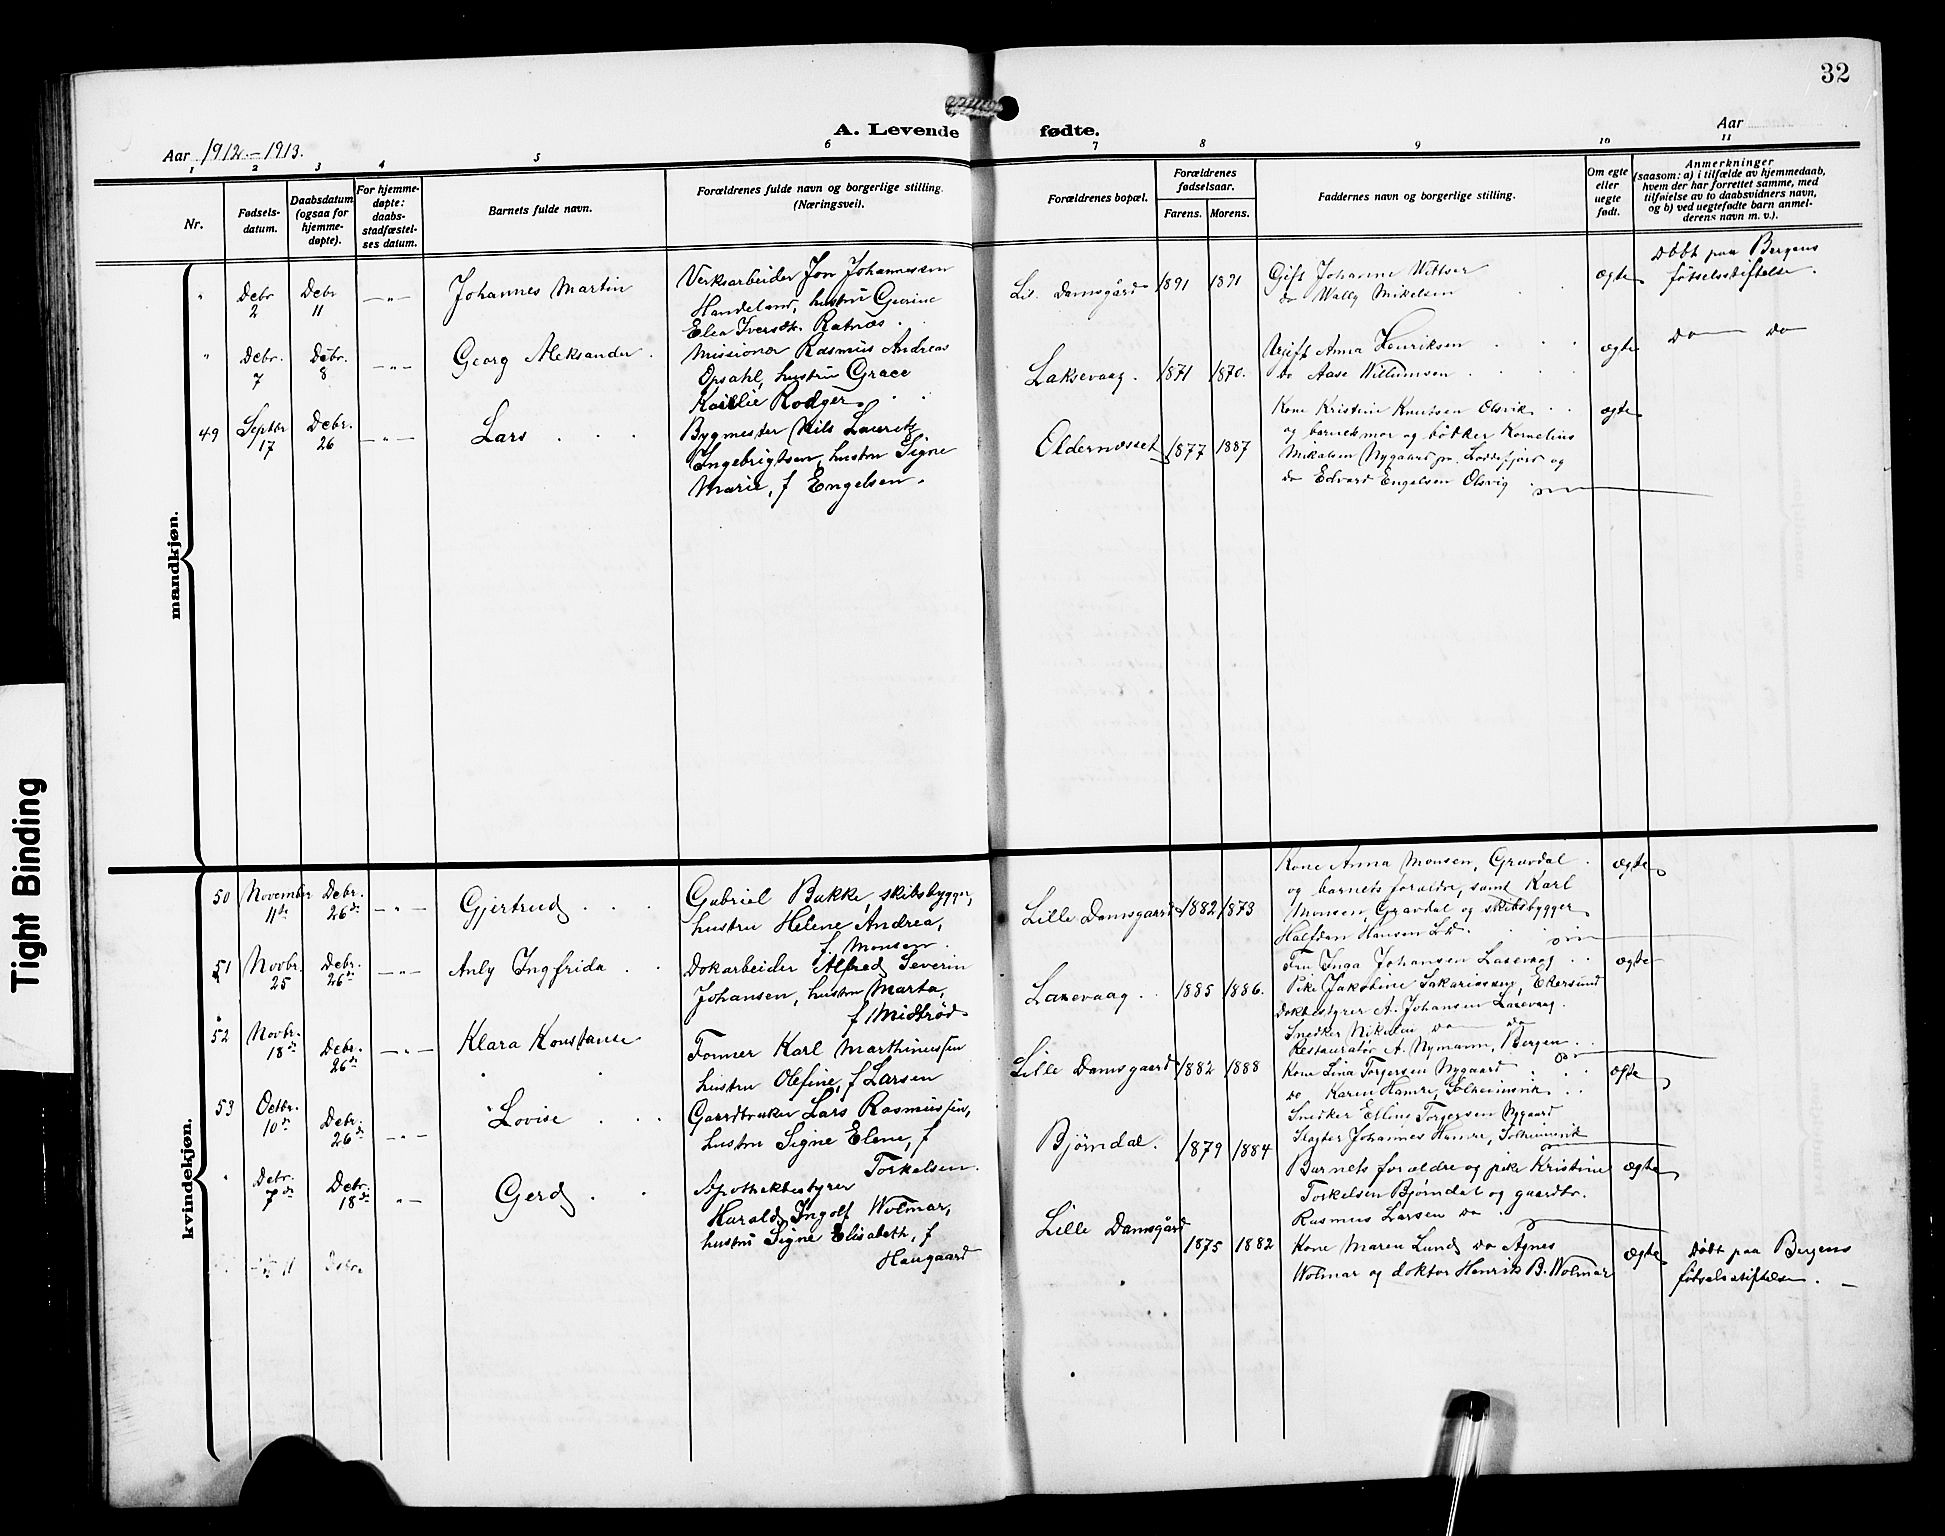 32
A. Levende fødte.
Aar 1912-1913.
Aar
1 2 3 4 5 6 7 8 9 10 11
Nr.
Fødsels-
datum.
Daabsdatum
(ogsaa for
hjemme-
døpte).
For hjemme-
døpte:
daabs-
stadfæstel-
ses datum.
Barnets fulde navn.
Forældrenes fulde navn og borgerlige stilling.
(Næringsvei).
Forældrenes bopæl.
Forældrenes
fødselsaar.
Farens. Morens.
Faddernes navn og borgerlige stilling.
Om egte
eller
uegte
født.
Anmerkninger
(saasom: a) i tilfælde av hjemmedaab,
hvem der har forrettet samme, med
tilføielse av to daabsvidners navn,
og b) ved uegtefødte barn anmel-
derens navn m. v.).
mandkjøn.
" Debr 2 Debr 11 — " —
Johannes Martin
Verksarbeider Jon Johannessen
Handeland, hustru Gurine
Elea Iversdtr. Ratnøs.
Lil. Damsgård 1891 1891
Gift Johanne Wittser
do Wally Mikelsen
ægte
Døbt paa Bergens
fötselsstiftelse.
" Debr. 7 Debr. 8 — " —
Georg Aleksander.
Missionær Rasmus Andreas
Opsahl, hustru Grace
Rodger.
Laksevaag. 1871 1870.
Ugift Anna Henriksen
do Aase Willumsen
ægte
do — do
49 Septbr 17 Debr. 26 — " —
Lars
Bygmester Nils Lauritz
Ingebrigtsen, hustru Signe
Marie, f Engelsen.
Oldernæsset 1877 1887
Kone Kristine Knutsen Olsvik
og barnets mor og bötker Kornelius
Mikalsen Nygaard pr. Loddefjord og
do Edvard Engelsen Olsvig
ægte
kvindekjøn.
50 November 11te Debr. 26de — " —
Gjertrud
Gabriel Bakke, skibsbygger,
hustru Helene Andrea,
f Monsen.
Lille Damsgaard 1882 1873
Kone Anna Monsen, Gravdal.
og barnets forældre, samt Karl
Monsen, Gravdal og skibsbygger
Halfdan Hansen Ld.
ægte
51 Novbr. 25 Debr. 26de — " —
Anly Ingfrida
Dokarbeider Alfred Severin
Johansen, hustru Marta,
f Midtrød
Laxevaag. 1885 1886.
Fru Inga Johansen Laxevaag
Pike Jakobine Sakariassen, Ekersund
Dokbestyrer A. Johansen Laxevaag.
Snedker Nikolai do do
Restauratør A. Nymann, Bergen
ægte
52 Novbr. 18de Debr. 26de — " —
Klara Konstanse
Former Karl Marthinussen
hustru Olefine, f Larsen
Lille Damsgaard 1882 1888
Kone Lina Torgersen Nygaard
do Karen Hamre, Solheimsvik
Snedker Elling Torgersen Nygaard
Slagter Johannes Hamre, Solheimsvik
ægte
53 Octbr. 10de Debr. 26de — " —
Lovise
Gaardbruker Lars Rasmussen,
hustru Signe Elene, f
Torkelsen.
Bjørndal. 1879 1884
Barnets forældre og pike Kristine
Torkelsen Bjørndal og gaardbr.
Rasmus Larsen do
ægte
" Debr. 7de Debr. 18de "
Gerd
Apothekbestyrer
Harald Ingolf Wolmar,
hustru Signe Elisabeth, f
Haugaard
Lille Damsgård 1875 1882
Kone Maren Lund do Agnes
Wolmar og doktor Henrik B. Wolmar
ægte
Döbt paa Bergens
fötselsstiftelse.
Tight Binding